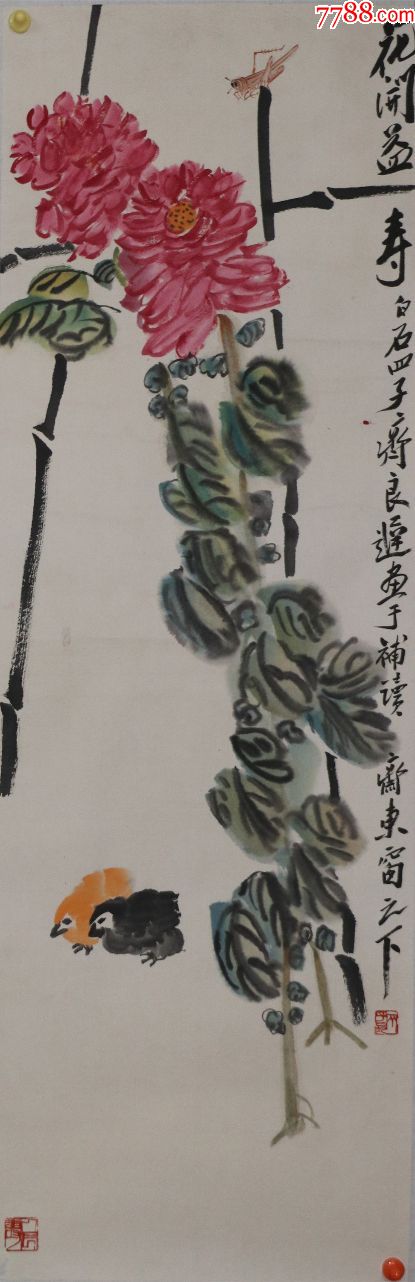 7788.com
花開益壽 白石四子齊良遲畫于補讀齋東窗之下